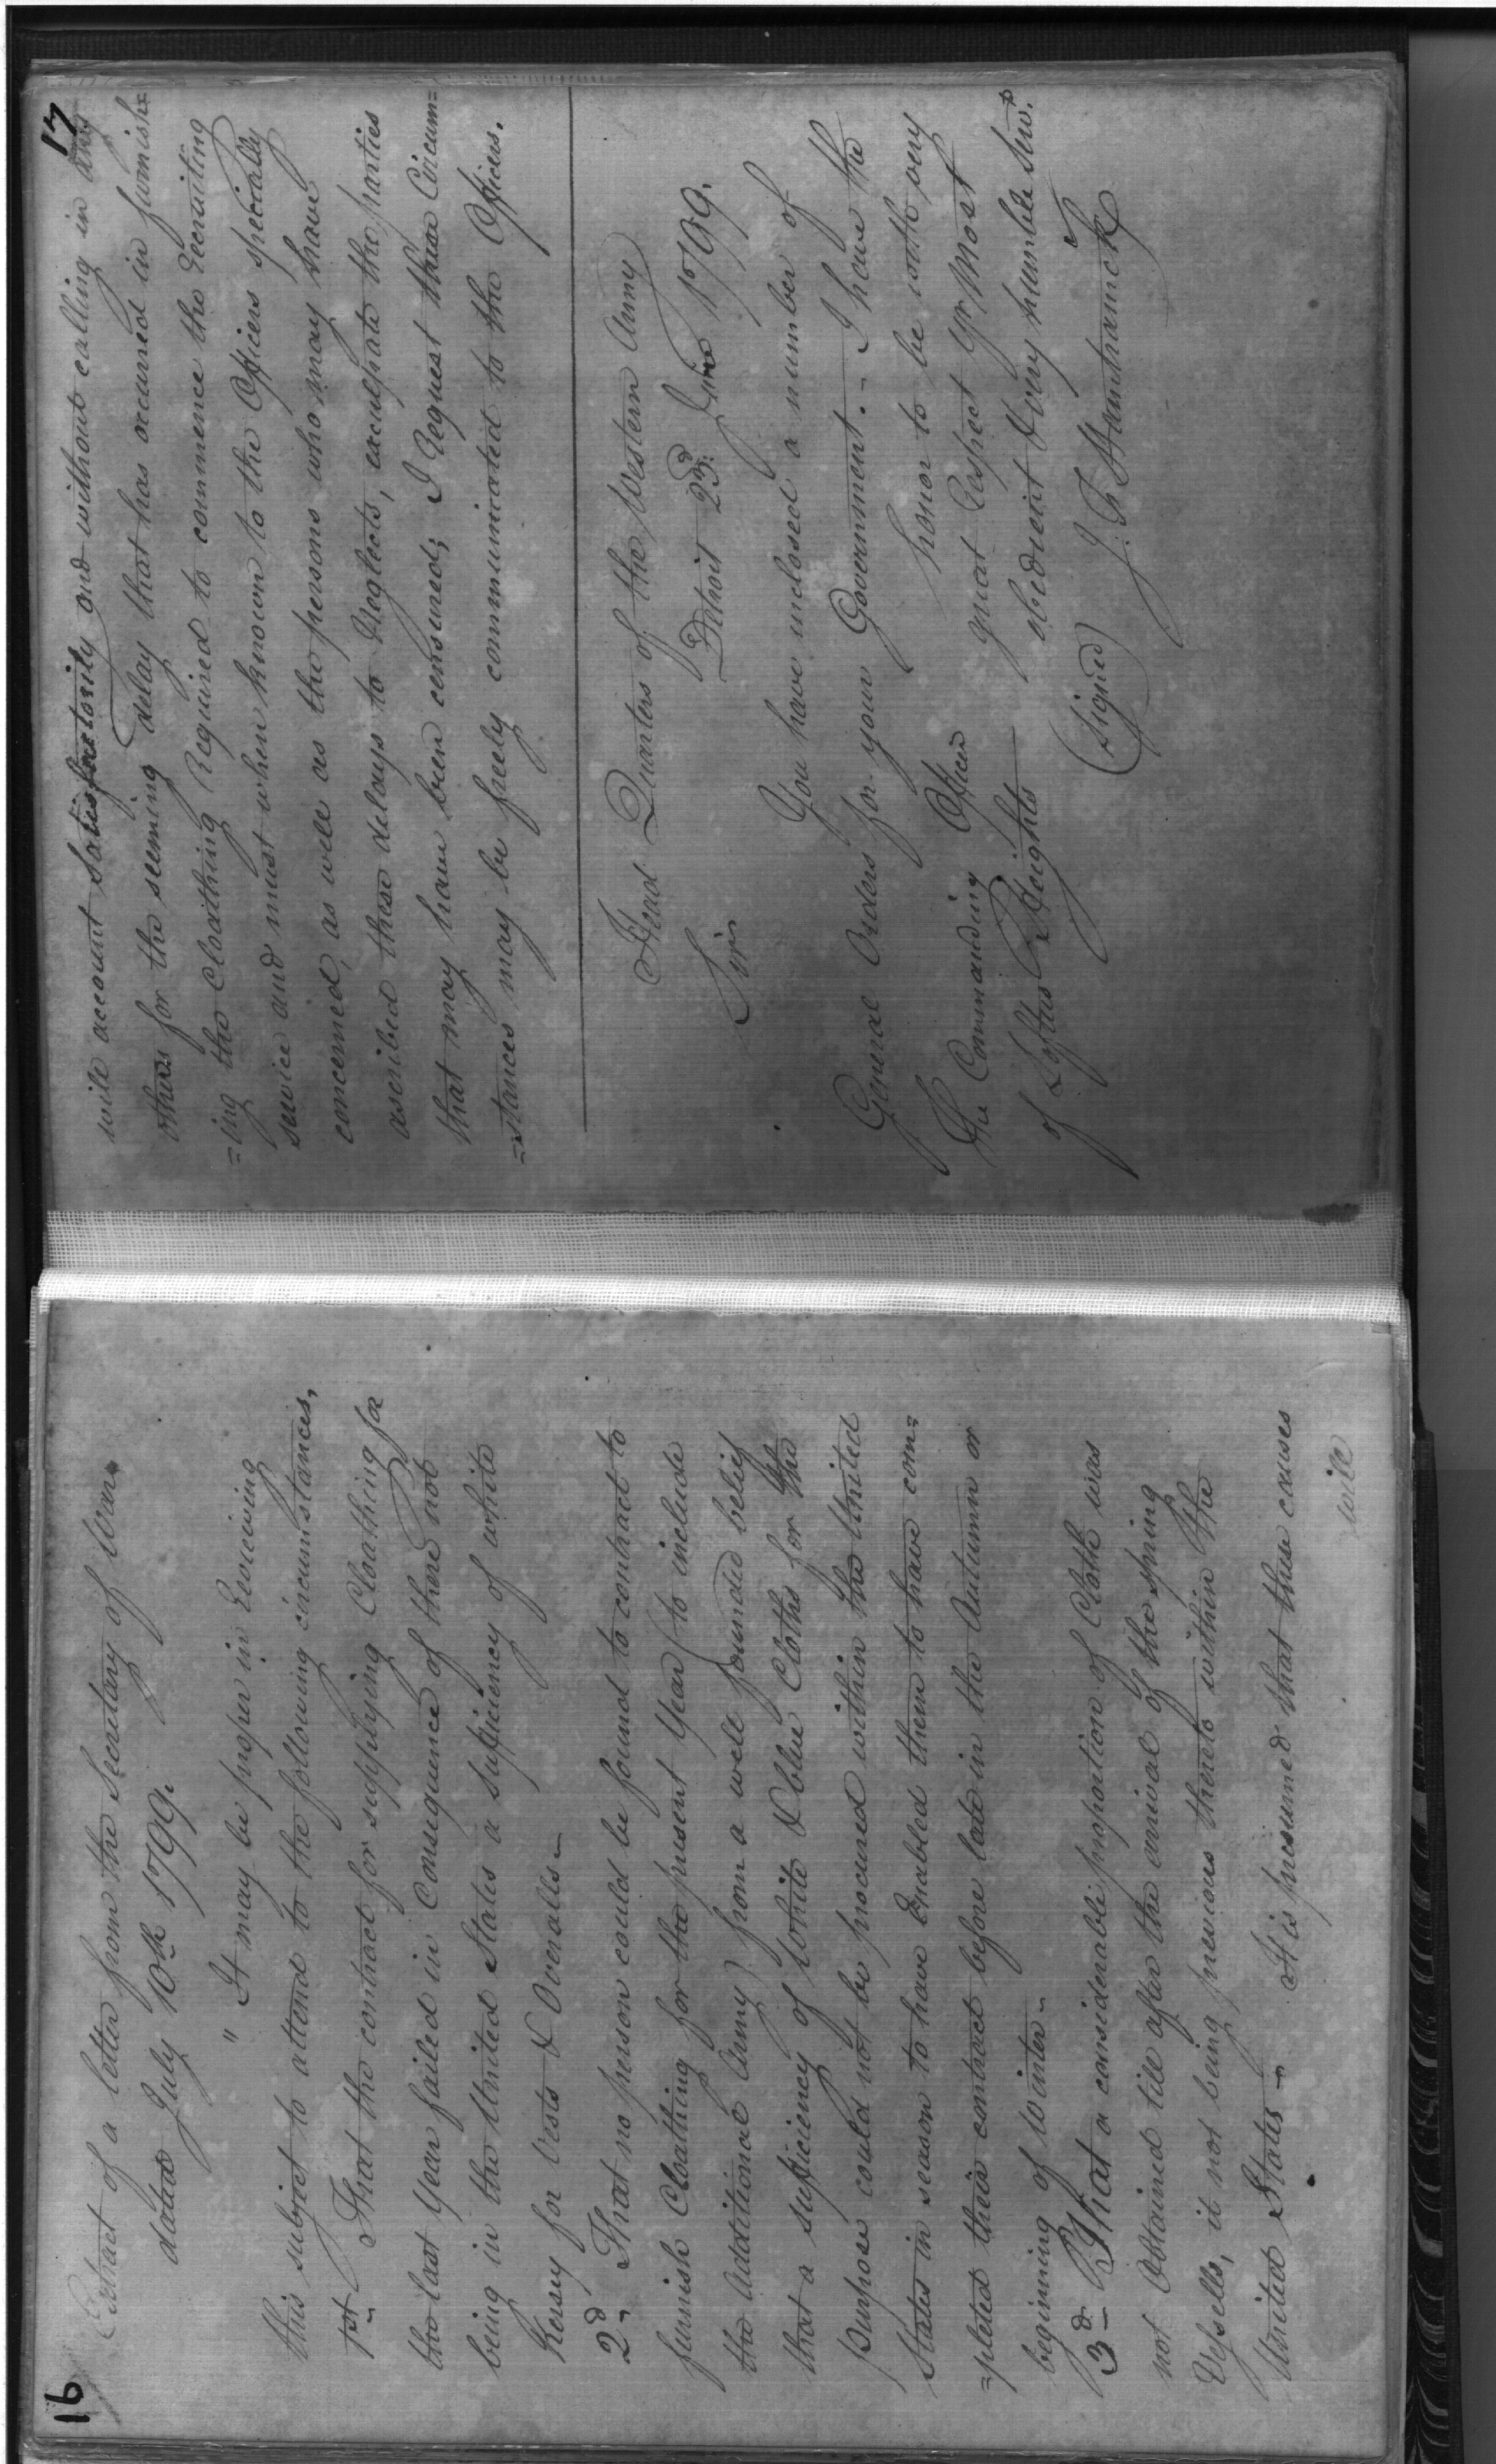 16
Extract of a letter from the Secretary of War
dated July 10th 1799.
" It may be proper in Reviewing
this subject to attend to the following circumstances,
1st That the contract for supplying Cloathing for
the last Year failed in Consequence of there not
being in the United States a sufficiency of white
Kersey for Vests & Overalls ~
2d That no person could be found to contract to
furnish Cloathing for the present Year (to include
the Additional Army) from a well founded belief
that a sufficiency of white & blue Cloths for the
purpose could not be procured within the United
States in season to have Enabled them to have com=
=pleted their contract before late in the Autumn or
beginning of Winter ~
3d That a considerable proportion of Cloth was
not Obtained till after the arrival of the Spring
Vessells, it not being previous thereto within the
United States ~ It is presumed that these causes
will
17
will account satisfactorily and without calling in any
others for the seeming delay that has occurred in furnish=
=ing the Cloathing Required to commence the Recruiting
service and must when known to the Officers specially
concerned, as well as the persons who may have
ascribed these delays to Neglects, exculpate the parties
that may have been censured; I Request these Circum=
=stances may be freely communicated to the Officers.
Head Quarters of the Western Army
Detroit 23d June 1799.
Sir
You have inclosed a number of
General Orders for your Government. ~ I have the
honor to be with very
The Commanding Officer great Respect Yr Most
of Loftus Heights obedient & very humble Serv.t
(signed) J. F. Hamtramck